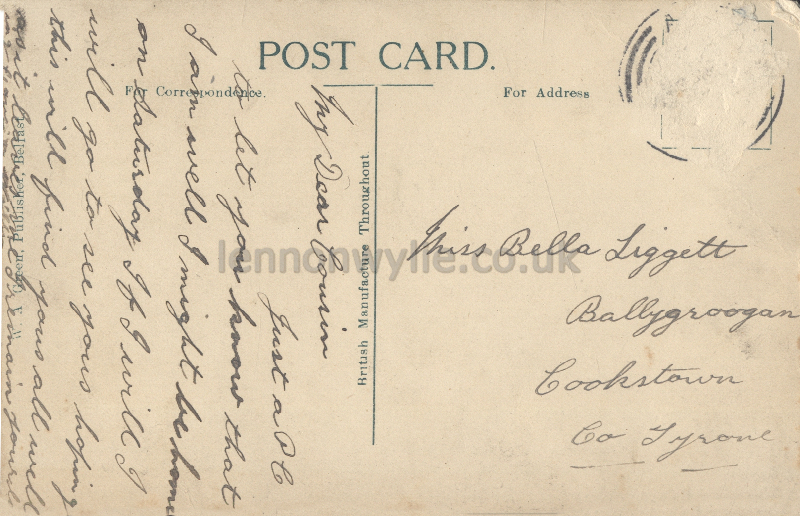 POST CARD.
For Correspondence.
For Address
British Manufacture Throughout
W. A. Green, Publisher, Belfast
My Dear Cousin
Just a P C
to let you know that
I am well I might be home
on Saturday If I will I
will go to see yous hoping
this will find yous all well
as it leaves me I remain yours
Miss Bella Liggett
Ballygroogan
Cookstown
Co Tyrone
lennonwylie.co.uk